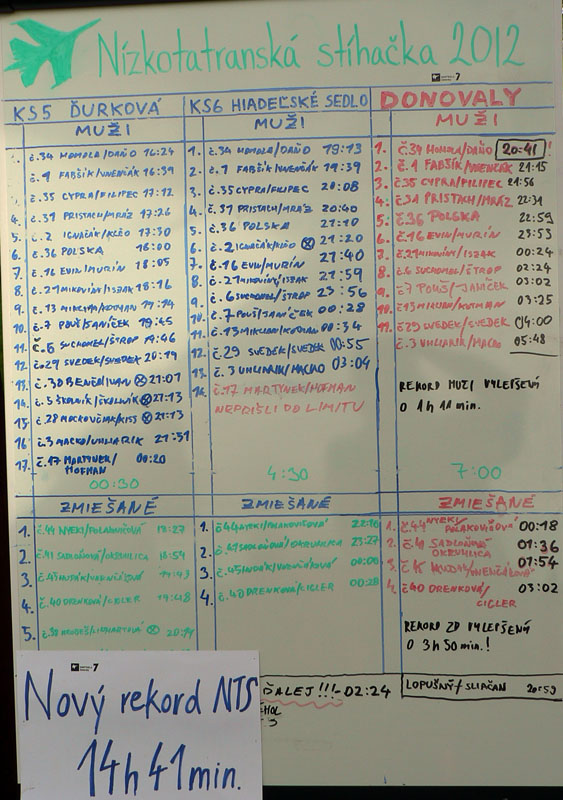 Nízkotatranská stíhačka 2012
KS5 ĎURKOVÁ
MUŽI
č.34 HOMOLA/DAŇO 16:24
č.1 FABŠÍK/ 16:39
č.35 CYPRA/FILIPEC 17:12
4. č.31 PRISTACH/MRÁZ 17:26
5. č.2 IGNAČÁK/ 17:30
6. č.36 POLSKA 18:00
7. č.16 EVIN/MURÍN 18:05
8. č.21 MIKOVINI/ISZAK 18:16
9. č.13 19:14
10. č.7 POUŠ/JANÍČEK 19:45
11. č.6 SUCHOMEL/ŠTROP 19:46
12. č.29 SVEDEK/SVEDEK 20:19
13. č.30 BENČO/IVAN 21:07
14. č.5 21:13
15. č.28 21:13
16. č.3 MACKO/UHLIARIK 21:51
17. č.17 MARTYNEK/HOFMAN 00:20
00:30
ZMIEŠANÉ
1. č.44 18:27
2. č.41 SADLOŇOVÁ/OKRUHLICA 18:54
3. č.45 19:43
4. č.40 DRENKOVÁ/CIGLER 19:48
5.
KS6 HIADEĽSKÉ SEDLO
MUŽI
1. č.34 HOMOLA/DAŇO 19:13
2. č.1 FABŠÍK/ 19:39
3. č.35 CYPRA/FILIPEC 20:08
4. č.31 PRISTACH/MRÁZ 20:40
5. č.36 POLSKA 21:10
6. č.2 IGNAČÁK/ 21:20
7. č.16 EVIN/MURÍN 21:40
8. č.21 MIKOVINI/ISZAK 21:59
9. č.6 SUCHOMEL/ŠTROP 23:56
10. č.7 POUŠ/JANÍČEK 00:28
11. č.13 00:34
12. č.29 SVEDEK/SVEDEK 00:55
13. č.3 UHLIARIK/MACKO 03:04
14. č.17 MARTYNEK/HOFMAN
NEPRIŠLI DO LIMITU
4:30
ZMIEŠANÉ
1. č.44 22:16
2. č.41 SADLOŇOVÁ/OKRUHLICA 23:27
3. č.45
4. č.40 DRENKOVÁ/CIGLER 00:28
ĎALEJ !!! - 02:24
DONOVALY
MUŽI
1. č.34 HOMOLA/DAŇO 20:41 !
2. č.1 FABŠÍK/ 21:15
3. č.35 CYPRA/FILIPEC 21:56
4. č.31 PRISTACH/MRÁZ 22:31
5. č.36 POLSKA 22:59
6. č.16 EVIN/MURÍN 23:53
7. č.21 MIKOVINI/ISZAK 00:24
8. č.6 SUCHOMEL/ŠTROP 02:24
9. č.7 POUŠ/JANÍČEK 03:02
10. č.13 03:25
11. č.29 SVEDEK/SVEDEK 04:00
č.3 UHLIARIK/MACKO 05:48
REKORD MUŽI VYLEPŠENÝ
O 1h 11 min.
7:00
ZMIEŠANÉ
1. č.44 00:18
2. č.41 SADLOŇOVÁ
OKRUHLICA 01:36
3. č.45 01:54
4. č.40 DRENKOVÁ/
CIGLER 03:02
REKORD ZD VYLEPŠENÝ
O 3h 50 min.!
LOPUŠNÝ/SLIAČAN 20:59
Nový rekord NTS
14h 41 min.